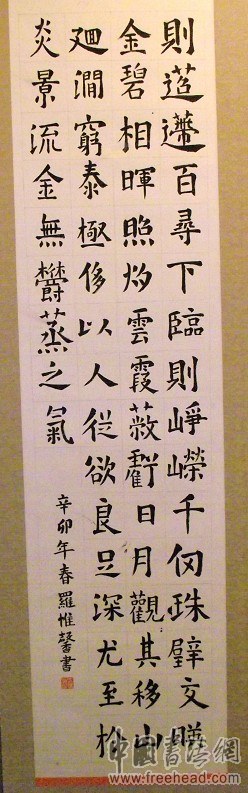 則迢遰百尋下臨則崢嶸千仞珠璧交暎
金碧相暉照灼雲霞蔽虧日月觀其移山
迴澗窮泰極侈以人從欲良足深尤至於
炎景流金無欝蒸之氣
辛卯年春羅惟馨書
中國書法網
www.freehead.com